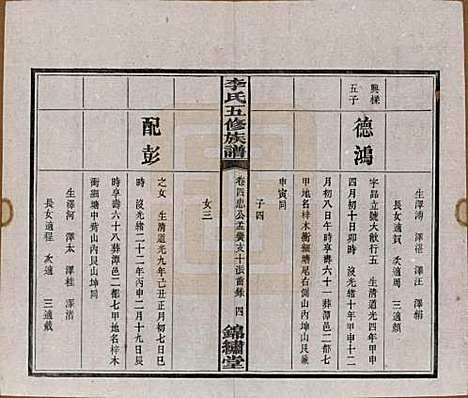 興樑
五子
德鴻
字品立號大猷行五 生清道光四年甲申
四月初十日卯時 沒光緒十年甲申十二
月初八日午時享壽六十一葬潭邑二都七
甲地名梓木衝塘尾右側山內坤山艮
申寅同
子四
生澤湧 澤湛 澤汪 澤緝
長女適賀 次適周 三適顏
李氏五修族譜
卷四惠公孟房支十派齒錄 四
錦繡堂
女三
配彭
之女 生清道光九年己丑正月初七日辰
時 沒光緒二十二年丙申二月十九日辰
時享壽六十八葬潭邑二都七甲地名梓木
衝塘中荷山內坤山艮向
生澤河 澤太 澤桂 澤清
長女適程 次適 三適戴